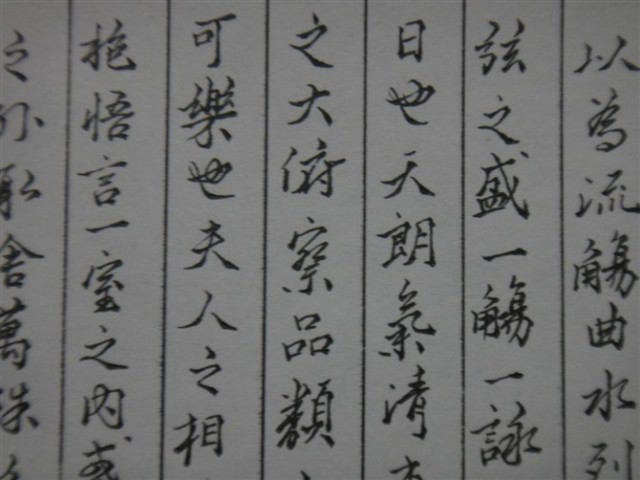 以為流觴曲水列
弦之盛一觴一詠
日也天朗氣清
之大俯察品類
可樂也夫人之相
抱悟言一室之內或
之外取舍萬殊